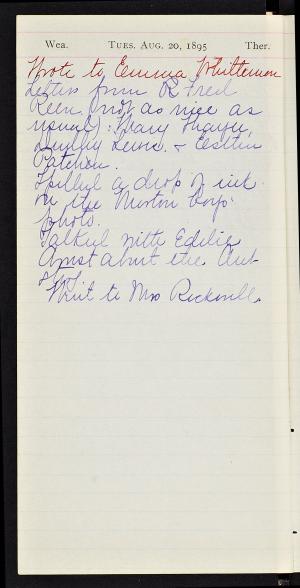 Wea. TUES. AUG. 20, 1895 Ther.
Wrote to Emma Whittemore
Letters from R Fred
Keen (not as nice as
usual): Mary Thayer,
Lewis &
Patchen.
Spilled a drop of ink
on the Morton boys'
photo.
Talked with Edith
about the Club
Went to Mrs Rockwell.